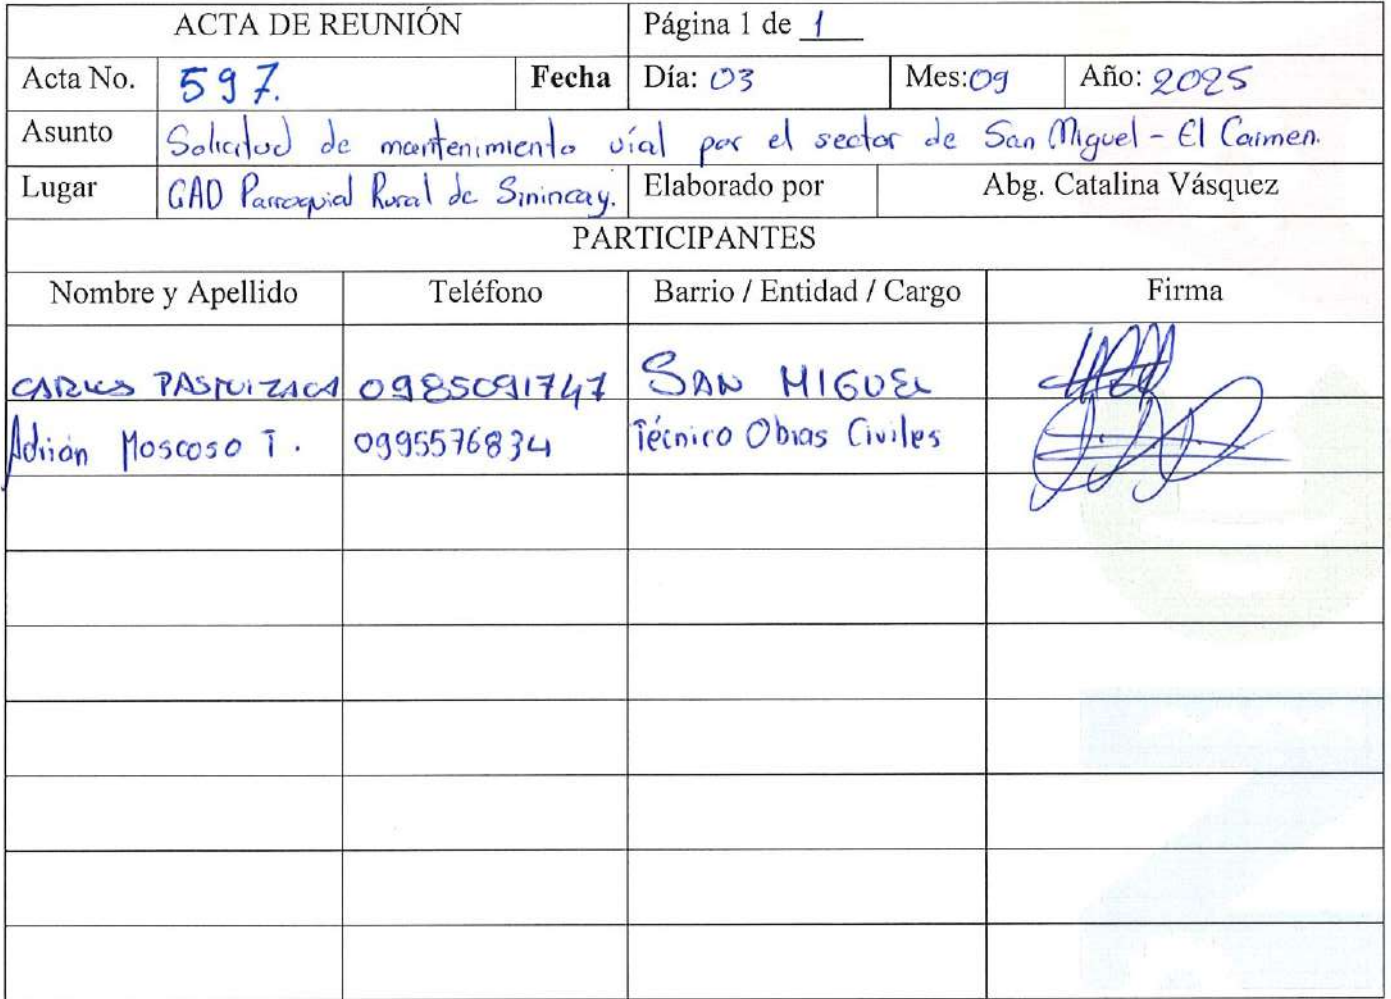 ACTA DE REUNIÓN Página 1 de 1
Acta No. 597. Fecha Día: 03 Mes: 09 Año: 2025
Asunto Solicitud de mantenimiento víal por el sector de San Miguel - El Carmen.
Lugar GAD Parroquial Rural de Sinincay. Elaborado por Abg. Catalina Vásquez
PARTICIPANTES
Nombre y Apellido Teléfono Barrio / Entidad / Cargo Firma
CARLOS 0985091747 SAN MIGUEL
Adrián Moscoso T. 0995576834 Técnico Obras Civiles